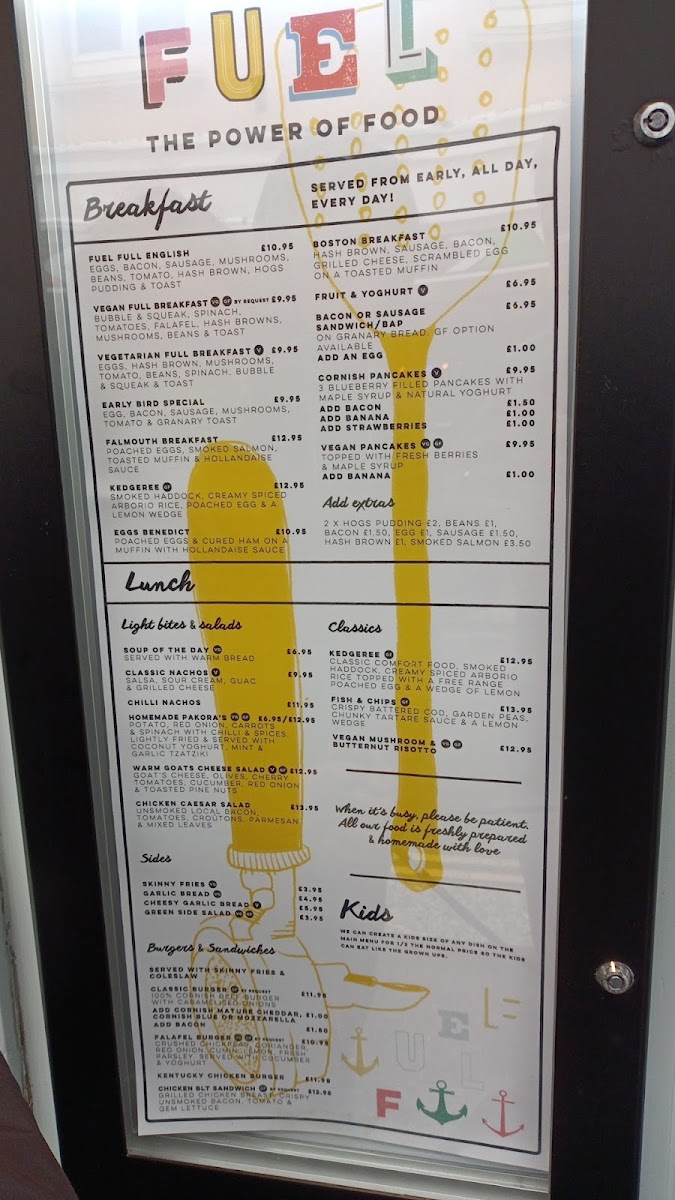 FUEL
THE POWER OF FOOD
Breakfast
SERVED FROM EARLY, ALL DAY,
EVERY DAY!
FUEL FULL ENGLISH £10.95
EGGS, BACON, SAUSAGE, MUSHROOMS,
BEANS, TOMATO, HASH BROWN, HOGS
PUDDING & TOAST
VEGAN FULL BREAKFAST VG GF BY REQUEST £9.95
BUBBLE & SQUEAK, SPINACH,
TOMATOES, FALAFEL, HASH BROWNS,
MUSHROOMS, BEANS & TOAST
VEGETARIAN FULL BREAKFAST V £9.95
EGGS, HASH BROWN, MUSHROOMS,
TOMATO, BEANS, SPINACH, BUBBLE
& SQUEAK & TOAST
EARLY BIRD SPECIAL £9.95
EGG, BACON, SAUSAGE, MUSHROOMS,
TOMATO & GRANARY TOAST
FALMOUTH BREAKFAST £12.95
POACHED EGGS, SMOKED SALMON,
TOASTED MUFFIN & HOLLANDAISE
SAUCE
KEDGEREE GF £12.95
SMOKED HADDOCK, CREAMY SPICED
ARBORIO RICE, POACHED EGG & A
LEMON WEDGE
EGGS BENEDICT £10.95
POACHED EGGS & CURED HAM ON A
MUFFIN WITH HOLLANDAISE SAUCE
BOSTON BREAKFAST £10.95
HASH BROWN, SAUSAGE, BACON,
GRILLED CHEESE, SCRAMBLED EGG
ON A TOASTED MUFFIN
FRUIT & YOGHURT V £6.95
BACON OR SAUSAGE £6.95
SANDWICH/BAP
ON GRANARY BREAD, GF OPTION
AVAILABLE
ADD AN EGG £1.00
CORNISH PANCAKES V £9.95
3 BLUEBERRY FILLED PANCAKES WITH
MAPLE SYRUP & NATURAL YOGHURT
ADD BACON £1.50
ADD BANANA £1.00
ADD STRAWBERRIES £1.00
VEGAN PANCAKES VG GF £9.95
TOPPED WITH FRESH BERRIES
& MAPLE SYRUP
ADD BANANA £1.00
Add extras
2 X HOGS PUDDING £2, BEANS £1,
BACON £1.50, EGG £1, SAUSAGE £1.50,
HASH BROWN £1, SMOKED SALMON £3.50
Lunch
Light bites & salads
SOUP OF THE DAY VG £6.95
SERVED WITH WARM BREAD
CLASSIC NACHOS V £9.95
SALSA, SOUR CREAM, GUAC
& GRILLED CHEESE
CHILLI NACHOS £11.95
HOMEMADE PAKORA'S VG GF £6.95/£12.95
POTATO, RED ONION, CARROTS
& SPINACH WITH CHILLI & SPICES,
LIGHTLY FRIED & SERVED WITH
COCONUT YOGHURT, MINT &
GARLIC TZATZIKI
WARM GOATS CHEESE SALAD V GF £12.95
GOAT'S CHEESE, OLIVES, CHERRY
TOMATOES, CUCUMBER, RED ONION
& TOASTED PINE NUTS
CHICKEN CAESAR SALAD £13.95
UNSMOKED LOCAL BACON,
TOMATOES, CROUTONS, PARMESAN
& MIXED LEAVES
Sides
SKINNY FRIES VG £3.95
GARLIC BREAD VG £4.95
CHEESY GARLIC BREAD V £5.95
GREEN SIDE SALAD VG GF £3.95
Burgers & Sandwiches
SERVED WITH SKINNY FRIES &
COLESLAW
CLASSIC BURGER GF BY REQUEST £11.95
100% CORNISH BEEF BURGER
WITH CARAMELISED ONIONS
ADD CORNISH MATURE CHEDDAR, £1.00
CORNISH BLUE OR MOZZARELLA
ADD BACON £1.50
FALAFEL BURGER VG GF BY REQUEST £10.95
CRUSHED CHICKPEAS, CORIANDER,
RED ONION, CUMIN, LEMON, FRESH
PARSLEY, SERVED WITH CUCUMBER
& YOGHURT
KENTUCKY CHICKEN BURGER £11.95
CHICKEN BLT SANDWICH GF BY REQUEST £12.95
GRILLED CHICKEN BREAST, CRISPY
UNSMOKED BACON, TOMATO &
GEM LETTUCE
Classics
KEDGEREE GF £12.95
CLASSIC COMFORT FOOD, SMOKED
HADDOCK, CREAMY SPICED ARBORIO
RICE TOPPED WITH A FREE RANGE
POACHED EGG & A WEDGE OF LEMON
FISH & CHIPS GF £13.95
CRISPY BATTERED COD, GARDEN PEAS,
CHUNKY TARTARE SAUCE & A LEMON
WEDGE
VEGAN MUSHROOM & VG GF
BUTTERNUT RISOTTO £12.95
When it's busy, please be patient.
All our food is freshly prepared
& homemade with love
Kids
WE CAN CREATE A KIDS SIZE OF ANY DISH ON THE
MAIN MENU FOR 1/2 THE NORMAL PRICE SO THE KIDS
CAN EAT LIKE THE GROWN UPS.
E F
U E L
F